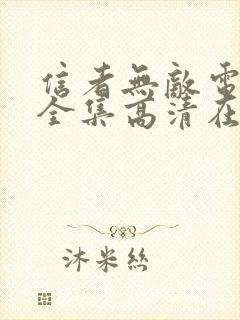 信者無敵電
全集高清在
沐米絲